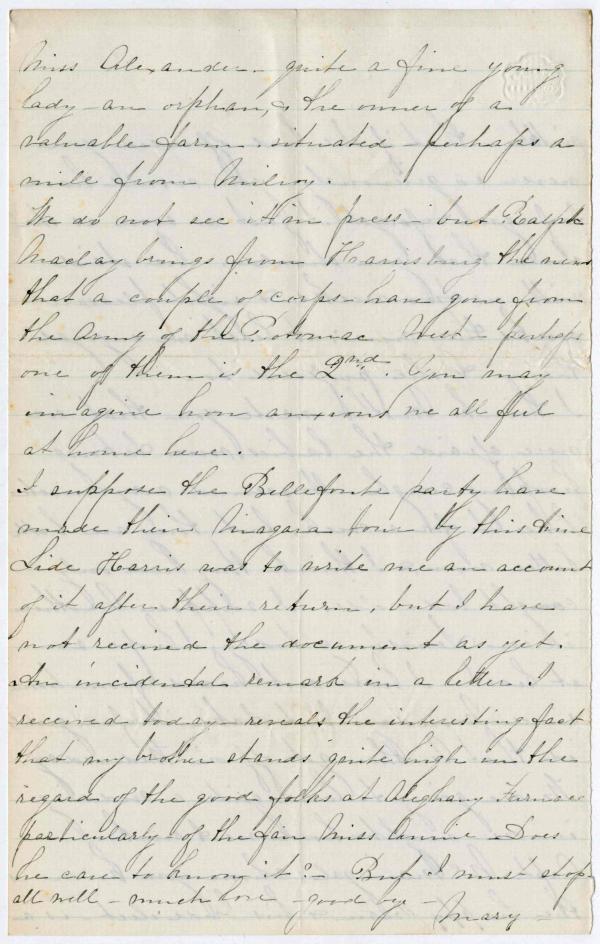 Miss Alexander - quite a fine young
lady - an orphan, & the owner of a
valuable farm - situated - perhaps a
mile from Milroy.
We do not see it in press - but Ralph
Maclay brings from Harrisburg the news
that a couple of corps - have gone from
the Army of the Potomac West - perhaps
one of them is the 2nd. You may
imagine how anxious we all feel
at home here.
I suppose the Bellefonte party have
made their Niagara tour by this time
Lide Harris was to write me an account
of it after their return, but I have
not received the document as yet.
An incidental remark in a letter I
received today - reveals the interesting fact
that my brother stands quite high in the
regard of the good folks at Aleghany Furnace
particularly - of the fair Miss Annie - Does
he care to know it? - But I must stop -
all well - much love - good bye -
Mary -